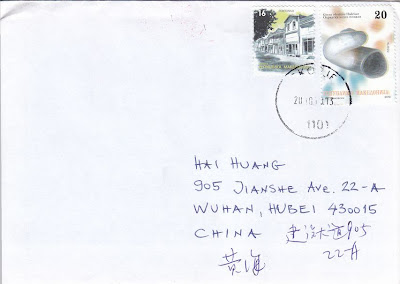 16
20
1101
HAI HUANG
905 JIANSHE AVE. 22-A
WUHAN, HUBEI 430015
CHINA 建设大道905
22A
黄海